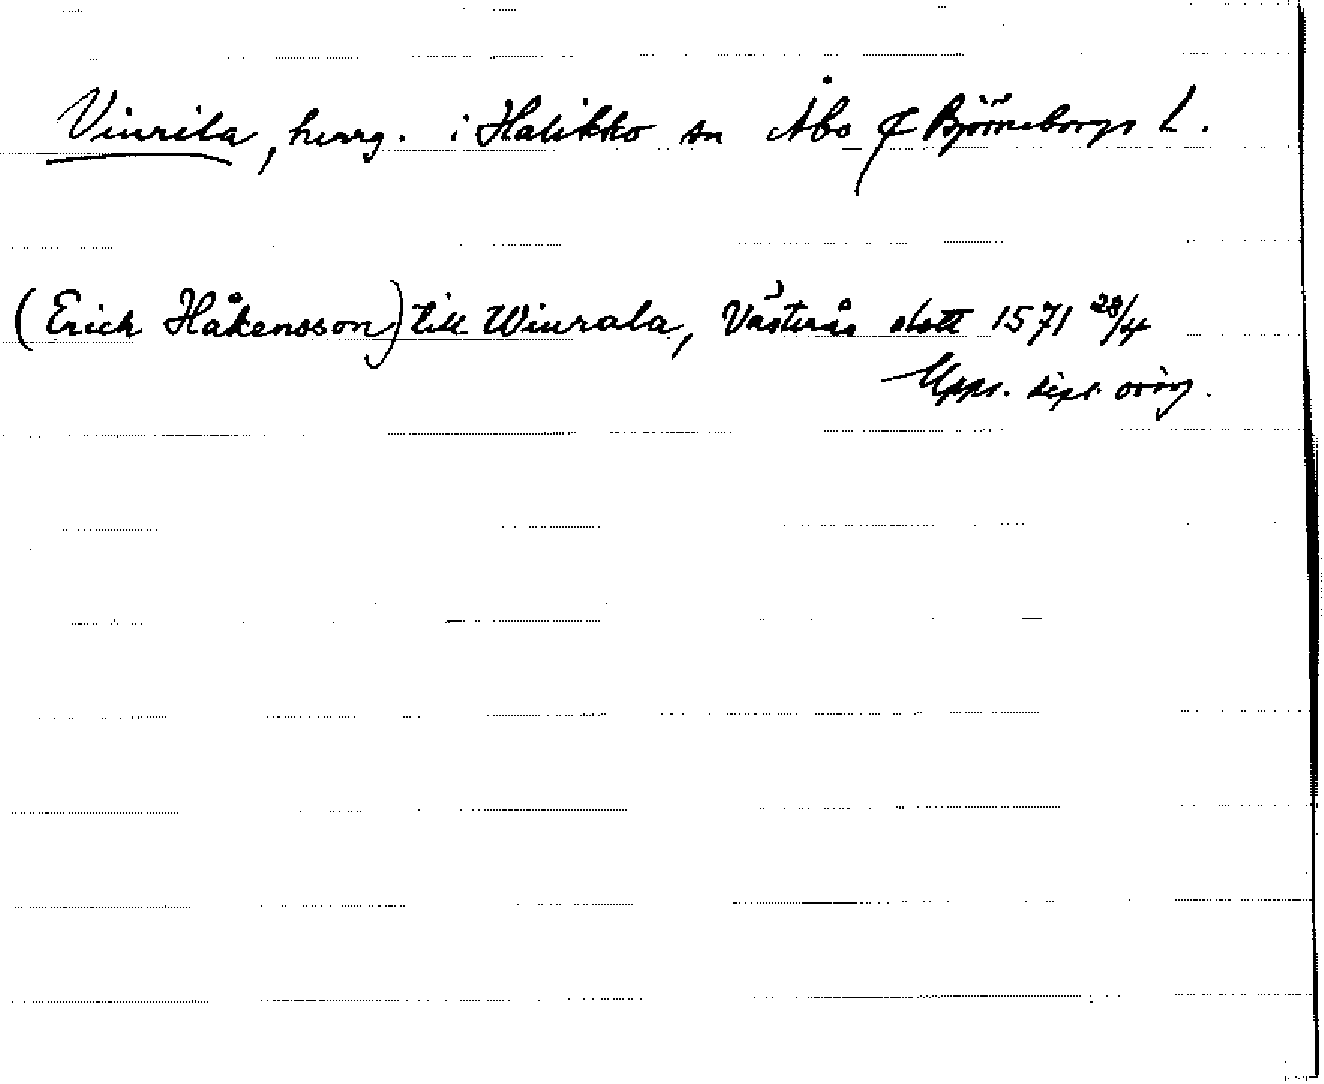 Viurila, herrg. i Halikko sn Åbo & Björneborgs L.
(Erich Håkensson) till Wiurala, Västerås slott 1571 28/4
Upps. dipl. orig.